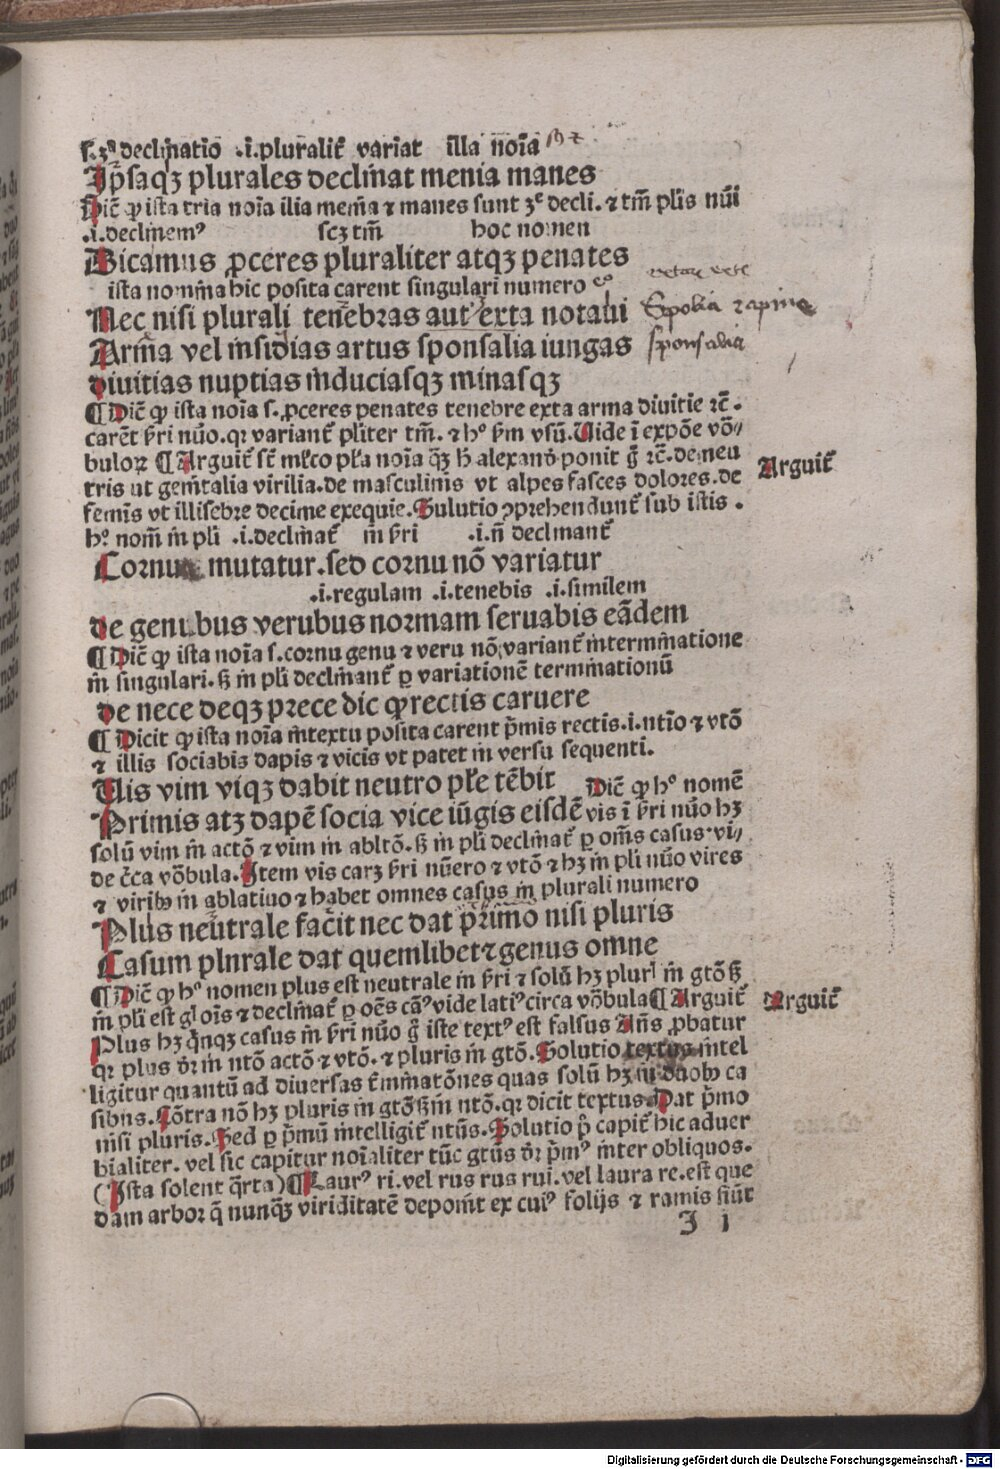 s. 3ª declinatio .i. pluralit̄ variat illa noīa
Ip̄asqꝫ plurales declinat menia manes
Dic̄ ꝙ ista tria noīa ilia mem̄a ⁊ manes sunt 3ᵉ decli. ⁊ tm̄ plīs nūi
.i. declinemꝰ scꝫ tm̄ hoc nomen
Dicamus ꝓceres pluraliter atqꝫ penates
ista nomīna hic posita carent singulari numero
Nec nisi plurali tenebras aut exta notabi Spolia rapine
Arma vel insidias artus sponsalia iungas sponsalia
diuitias nuptias induciasqꝫ minasqꝫ
¶ Dic̄ ꝙ ista noīa s. ꝓceres penates tenebre exta arma diuitie ⁊c̄.
carēt s̄ri nūo. qꝛ variant̄ pl̄iter tm̄. ⁊ hᵒ s̄m vsū. Uide ī expōe vō⸗
buloꝝ ¶ Arguit̄ st̄ ml̄to pl̄a noīa qꝫ h̄ alexand̄ ponit g̊ ⁊c̄. de neu
Arguit̄
tris ut genitalia virilia. de masculinis vt alpes fasces dolores. de
femīs vt illisebre decime exequie. Solutio ꝯprehendunt̄ sub istis.
hᵒ nom̄ in pli .i. declinat̄ in s̄ri .i. n̄ declinant̄
Cornu mutatur. sed cornu nō variatur
.i. regulam .i. tenebis .i. similem
de genubus verubus normam seruabis eādem
¶ Dic̄ ꝙ ista noīa s. cornu genu ⁊ veru nō variant̄ in terminatione
in singulari. sꝫ in pli declinant̄ ꝑ variationē terminationū
de nece deqꝫ prece dic ꝙ rectis caruere
¶ Dicit ꝙ ista noīa in textu posita carent p̄mis rectis .i. ntīo ⁊ vtō
⁊ illis sociabis dapis ⁊ vicis vt patet in versu sequenti.
Uis vim viqꝫ dabit neutro pl̄e tēbit Dic̄ ꝙ hᵒ nomē
Primis atꝫ dapē socia vice iūgis eisdē vis ī s̄ri nūo hꝫ
solū vim in actō ⁊ vim in abltō. sꝫ in pli declinat̄ ꝑ om̄s casus. vi⸗
de c̄ca vōbula. Item vis carꝫ s̄ri nūero ⁊ vtō ⁊ hꝫ in pli nūo vires
⁊ viribꝫ in ablatiuo ⁊ habet omnes casus in plurali numero
Plus neutrale facit nec dat primo nisi pluris
Casum plnrale dat quemlibet ⁊ genus omne
¶ Dic̄ ꝙ hᵒ nomen plus est neutrale in s̄ri ⁊ solū hꝫ plurl̄ in gtō sꝫ
in pli est gl̄ oīs ⁊ declinat̄ ꝑ oēs cāꝰ vide latiꝰ circa vōbula ¶ Arguit̄
Arguit̄
Plus hꝫ q̄nqꝫ casus in s̄ri nūo g̊ iste textꝰ est falsus Añs ꝓbatur
qꝛ plus dr̄ in ntō actō ⁊ vtō. ⁊ pluris in gtō. Solutio textus intel
ligitur quantū ad diuersas t̄minatōnes quas solū hꝫ in duobꝫ ca
sibns. Cōtra nō hꝫ pluris in gtō sꝫ in ntō. qꝛ dicit textus Dat p̄mo
nisi pluris. Sed ꝑ p̄mū intelligit̄ ntūs. Solutio p̄ capit̄ hic aduer
bialiter. vel sic capitur noīaliter tūc gtūs dr̄ p̄mꝰ inter obliquos.
(Ista solent q̄rta) ¶ Laurꝰ ri. vel rus rus rui. vel laura re. est que
dam arbor q̄ nunqꝫ viriditatē deponit ex cuiꝰ folijs ⁊ ramis fiūt
I i
Digitalisierung gefördert durch die Deutsche Forschungsgemeinschaft - DFG